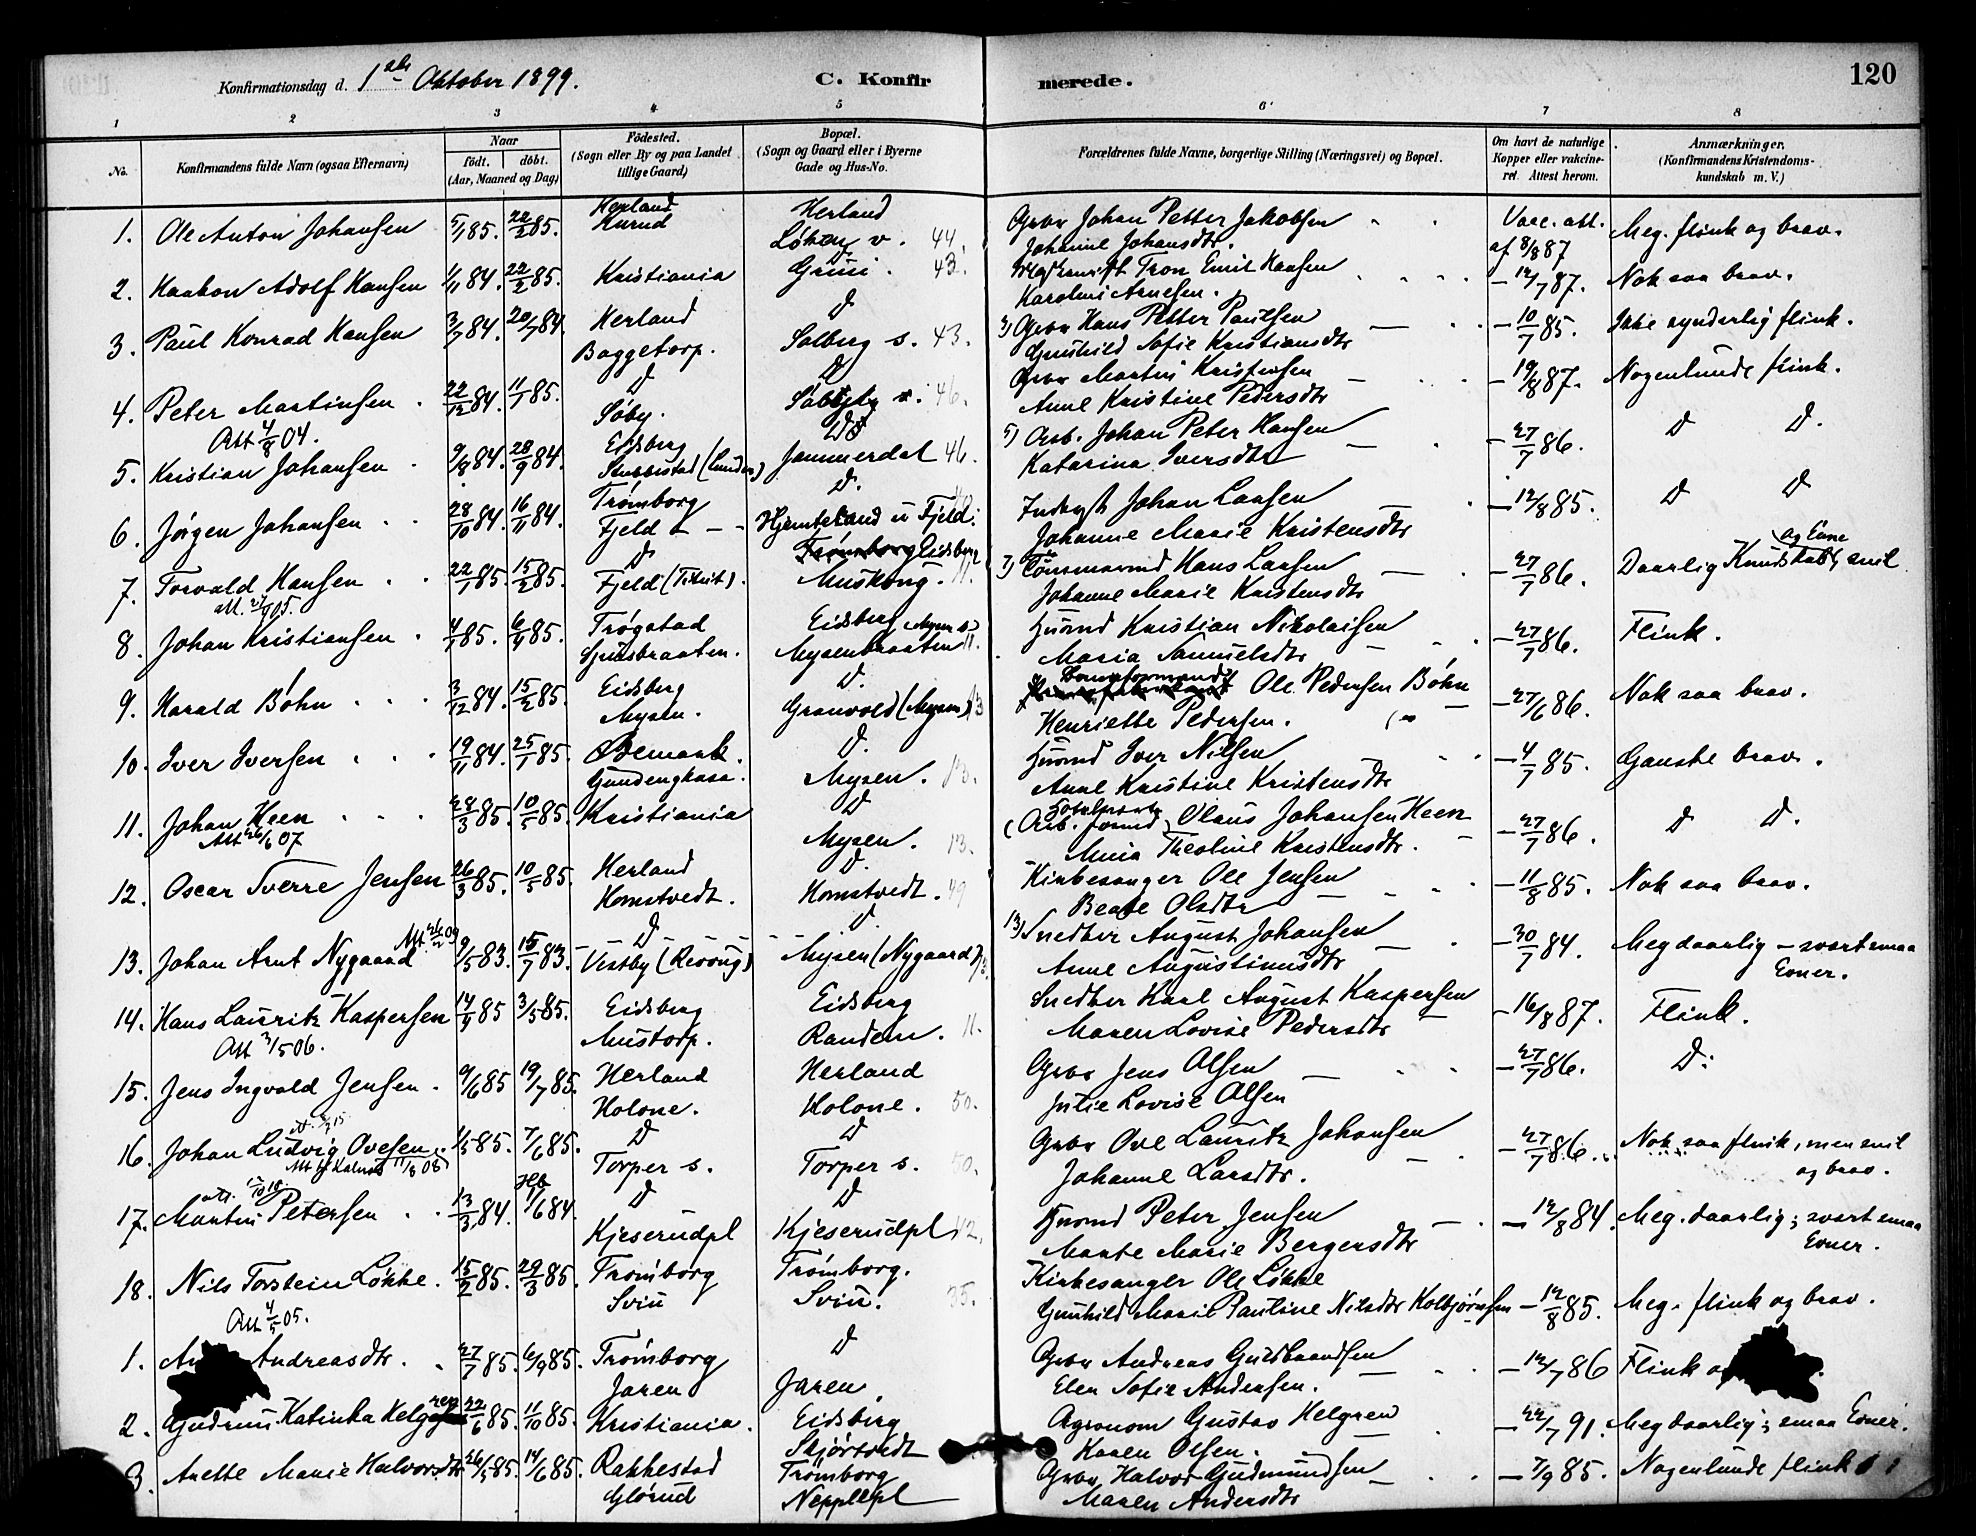 Konfirmationsdag d. 1ste Oktober 1899. C. Konfirmerede. 120
1 2 3 4 5 6 7 8
No. Konfirmandens fulde Navn (ogsaa Efternavn) Naar født. døbt. (Aar, Maaned og Dag) Fødested. (Sogn eller By og paa Landet tillige Gaard) Bopæl. (Sogn og Gaard eller i Byerne Gade og Hus-No. Forældrenes fulde Navne, borgerlige Stilling (Næringsvei) og Bopæl. Om havt de naturlige Kopper eller vakcineret. Attest herom. Anmærkninger. (Konfirmandens Kristendomskundskab m. V.)
1. Ole Anton Johansen 5/1 85. 22/2 85. Herland Herland Gbr Johan Petter Jakobsen Vacc. att. Meg. flink og brav.
Løken v. 44. Johanne Johansdtr. af 8/8 87
2. Haakon Adolf Hansen 1/11 84. 22/2 85. Kristiania D 43. Tron Emil Hansen - 12/7 87. Nok saa brav.
Karoline Arnesen.
3. Paul Konrad Hansen 3/7 84. 20/7 84. Herland D Gbr Hans Petter Paulsen - 10/7 85. Ikke synderlig flink.
Baggetorp. Solberg s. 43. Gunhild Sofie Kristiansdtr
4. Peter Martinsen. 22/12 84. 11/1 85. D D Gbr Martin Kristensen - 19/8 87. Nogenlunde flink.
Att 4/8 04. Søby. 46. Anne Kristine Pedersdtr
5. Kristian Johansen. 9/8 84. 28/9 84. Eidsberg D Arb. Johan Peter Hansen - 27/7 86. D D.
Stubbestad (Lunden) Jammerdal 46. Katarina Iversdtr
6. Jørgen Johansen. 28/10 84. 16/11 84. Trømborg D. Johan Larsen - 12/8 85. D D
Fjeld Hjemteland u Fjeld. Johanne Marie Kristensdtr
7. Torvald Hansen 22/1 85. 15/2 85. D Trømborg Eidsberg Hans Larsen - 27/7 86. Daarlig Kundskab og Evne, snil
Fjeld Muskong. 11. Johanne Marie Karstensdtr
8. Johan Kristiansen. 4/1 85. 6/4 85. Trøgstad Eidsberg Husmd Kristian Nikolaisen - 27/7 86. Flink.
Mysenbraaten 11. Maria Samuelsdtr
9. Harald Bøhn 3/12 84. 15/2 85. Eidsberg D. Ole Pedersen Bøhn - 27/6 86. Nok saa brav.
Mysen. Granvold (Mysen) 13 Henriette Pedersen.
10. Iver Iversen 19/11 84. 25/1 85. Ødemark. D. Husmd Iver Nilsen - 4/7 85. Ganske brav.
Mysen. 13. Anne Kristine Kristensdtr
11. Johan Heen 28/3 85. 10/5 85. Kristiania D (Arb. formd) Olaus Johansen Heen - 27/7 86. D D.
Att 26/6 07 Mysen. 13. Theoline Karstensdtr.
12. Oscar Sverre Jensen 26/3 85. 10/5 85. Herland D. Kirkesanger Ole Jensen - 11/8 85. Nok saa brav.
Homstvedt. Homstvedt. 49 Beate Olsdtr
13. Johan Arnt Nygaard 9/5 83. 15/7 83. D D. Snedker August Johansen - 30/7 84. Meg daarlig - svært smaa
Vestby Mysen (Nygaard) Anne Augustinusdtr Evner.
14. Hans Lauritz Kaspersen 14/4 85 3/5 85. Eidsberg Eidsberg Snedker Karl August Kaspersen - 16/8 87. Flink.
Att 3/5 06. Mustorp. Randem. 11. Maren Lovise Pedersdtr
15. Jens Ingvald Jensen. 9/6 85 19/7 85. Herland Herland Gbr Jens Olsen - 27/7 86. D.
Holone. Holone. 50. Julie Lovise Olsen
16. Johan Ludvig Ovesen. 1/5 85. 7/6 85. D D Gbr Ove Lauritz Johansen - 27/7 86. Nok saa flink, men snil
Torper s. Torper s. 50. Johanne Larsdtr. og brav.
17. Martin Petersen 13/3 84. Hb 1/6 84. D D Husmd Peter Jensen - 12/8 84. Meg. daarlig; svært smaa
Kjeserudpl Kjeserudpl 42. Marte Marie Bergersdtr Evner.
18. Nils Torstein Løkke. 15/2 85. 29/3 85. Trømborg Trømborg. Kirkesanger Ole Løkke - 12/8 85. Meg. flink og brav.
Att 4/5 05. Sviu Sviu. 35. Gunhild Marie Pauline Nilsdtr Kolbjørnsen
1. Andreasdtr. 27/7 85. 6/9 85. Trømborg D Gbr Andreas Guldbrandsen - 12/7 86 Flink
Jaren Jaren. Elen Sofie Andersen.
2. Gudrun Katinka Helgren 22/6 85. 11/10 85. Kristiania. Eidsberg Agronom Gustav Helgren - 22/7 91. Meg daarlig; smaa Evner.
Skjørtvedt Karen Olsen.
3. Anette Marie Halvorsdtr 26/5 85. 14/6 85. Rakkestad Trømborg Gbr Halvor Gudmundsen - 7/9 85. Nogenlunde flink
Glørud Nepplepl Maren Andersdtr